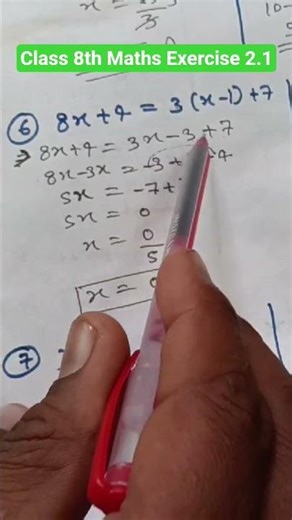 Class 8th Maths Exercise 2.1
x =
⑥ 8x+4 = 3(x-1)+7
⇒ 8x+4 = 3x-3+7
8x-3x = -3+ -4
5x = -7+
5x = 0
x = 0/5
x = 0
⑦